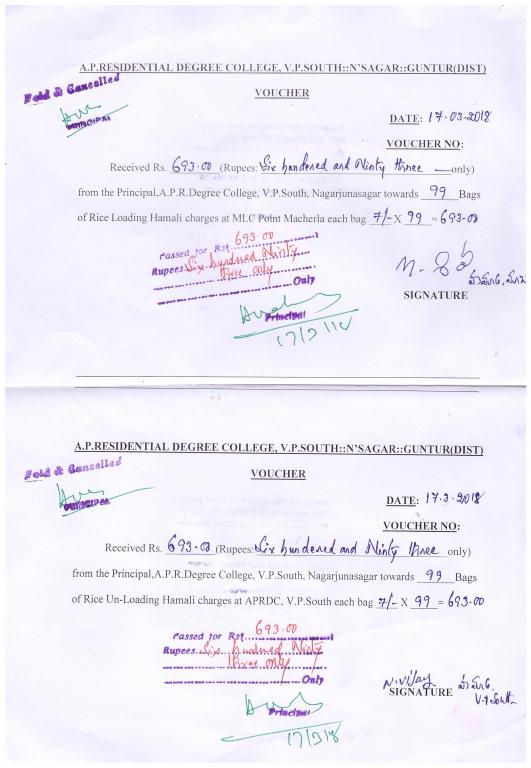 A.P.RESIDENTIAL DEGREE COLLEGE, V.P.SOUTH::N'SAGAR::GUNTUR(DIST)
Paid & Cancelled
PRINCIPAL
VOUCHER
DATE: 17-03-2018
VOUCHER NO:
Received Rs. 693-00 (Rupees: Six hundered and Ninty three only)
from the Principal,A.P.R.Degree College, V.P.South, Nagarjunasagar towards 99 Bags
of Rice Loading Hamali charges at MLC Point Macherla each bag 7/- X 99 = 693-00
Passed for Rs. 693-00
Rupees Six hundered Ninty
three only
Only
SIGNATURE
Principal
17/3/18
A.P.RESIDENTIAL DEGREE COLLEGE, V.P.SOUTH::N'SAGAR::GUNTUR(DIST)
Paid & Cancelled
PRINCIPAL
VOUCHER
DATE: 17-3-2018
VOUCHER NO:
Received Rs. 693-00 (Rupees: Six hundered and Ninty three only)
from the Principal,A.P.R.Degree College, V.P.South, Nagarjunasagar towards 99 Bags
of Rice Un-Loading Hamali charges at APRDC, V.P.South each bag 7/- X 99 = 693-00
Passed for Rs. 693-00
Rupees Six hundered Ninty
three only
Only
N.Vijay
SIGNATURE
Principal
17/3/18